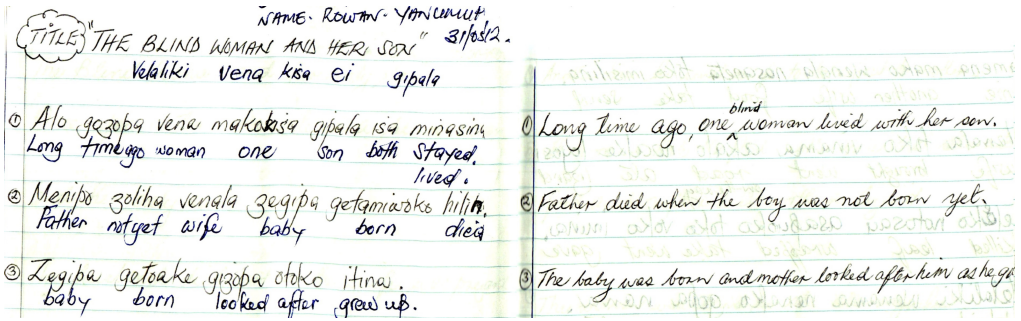 NAME. ROWAN. YANUMUH
TITLE "THE BLIND WOMAN AND HER SON" 31/05/12.
Velaliki vena kisa ei gipala
① Alo gozopa vena makokisa gipala isa minasina
Long time ago woman one son both stayed.
lived.
② Menipo zoliha venala zegipa getamiaroko hilin.
Father not yet wife baby born died
③ Zegipa getoake gizopa otoko itina.
baby born looked after grew up.
① Long time ago, one blind woman lived with her son.
② Father died when the boy was not born yet.
③ The baby was born and mother looked after him as he g